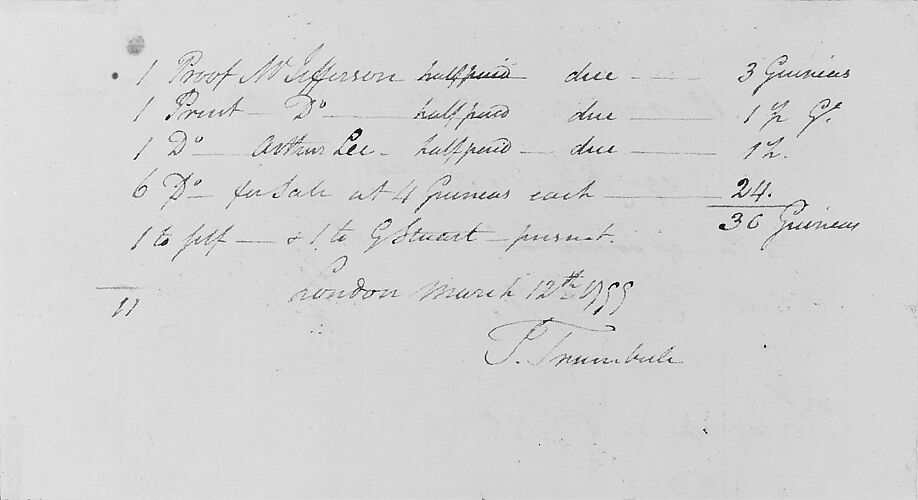 1 Proof Mr Jefferson half paid due 3 Guineas
1 Print Do half paid due 1 1/2 Gs.
1 Do Arthur Lee half paid due 1 1/2.
6 Do for Sale at 4 Guineas each 24.
30 Guineas
1 to self & 1 to G Stuart present.
11
London March 12th 1799
J. Trumbull